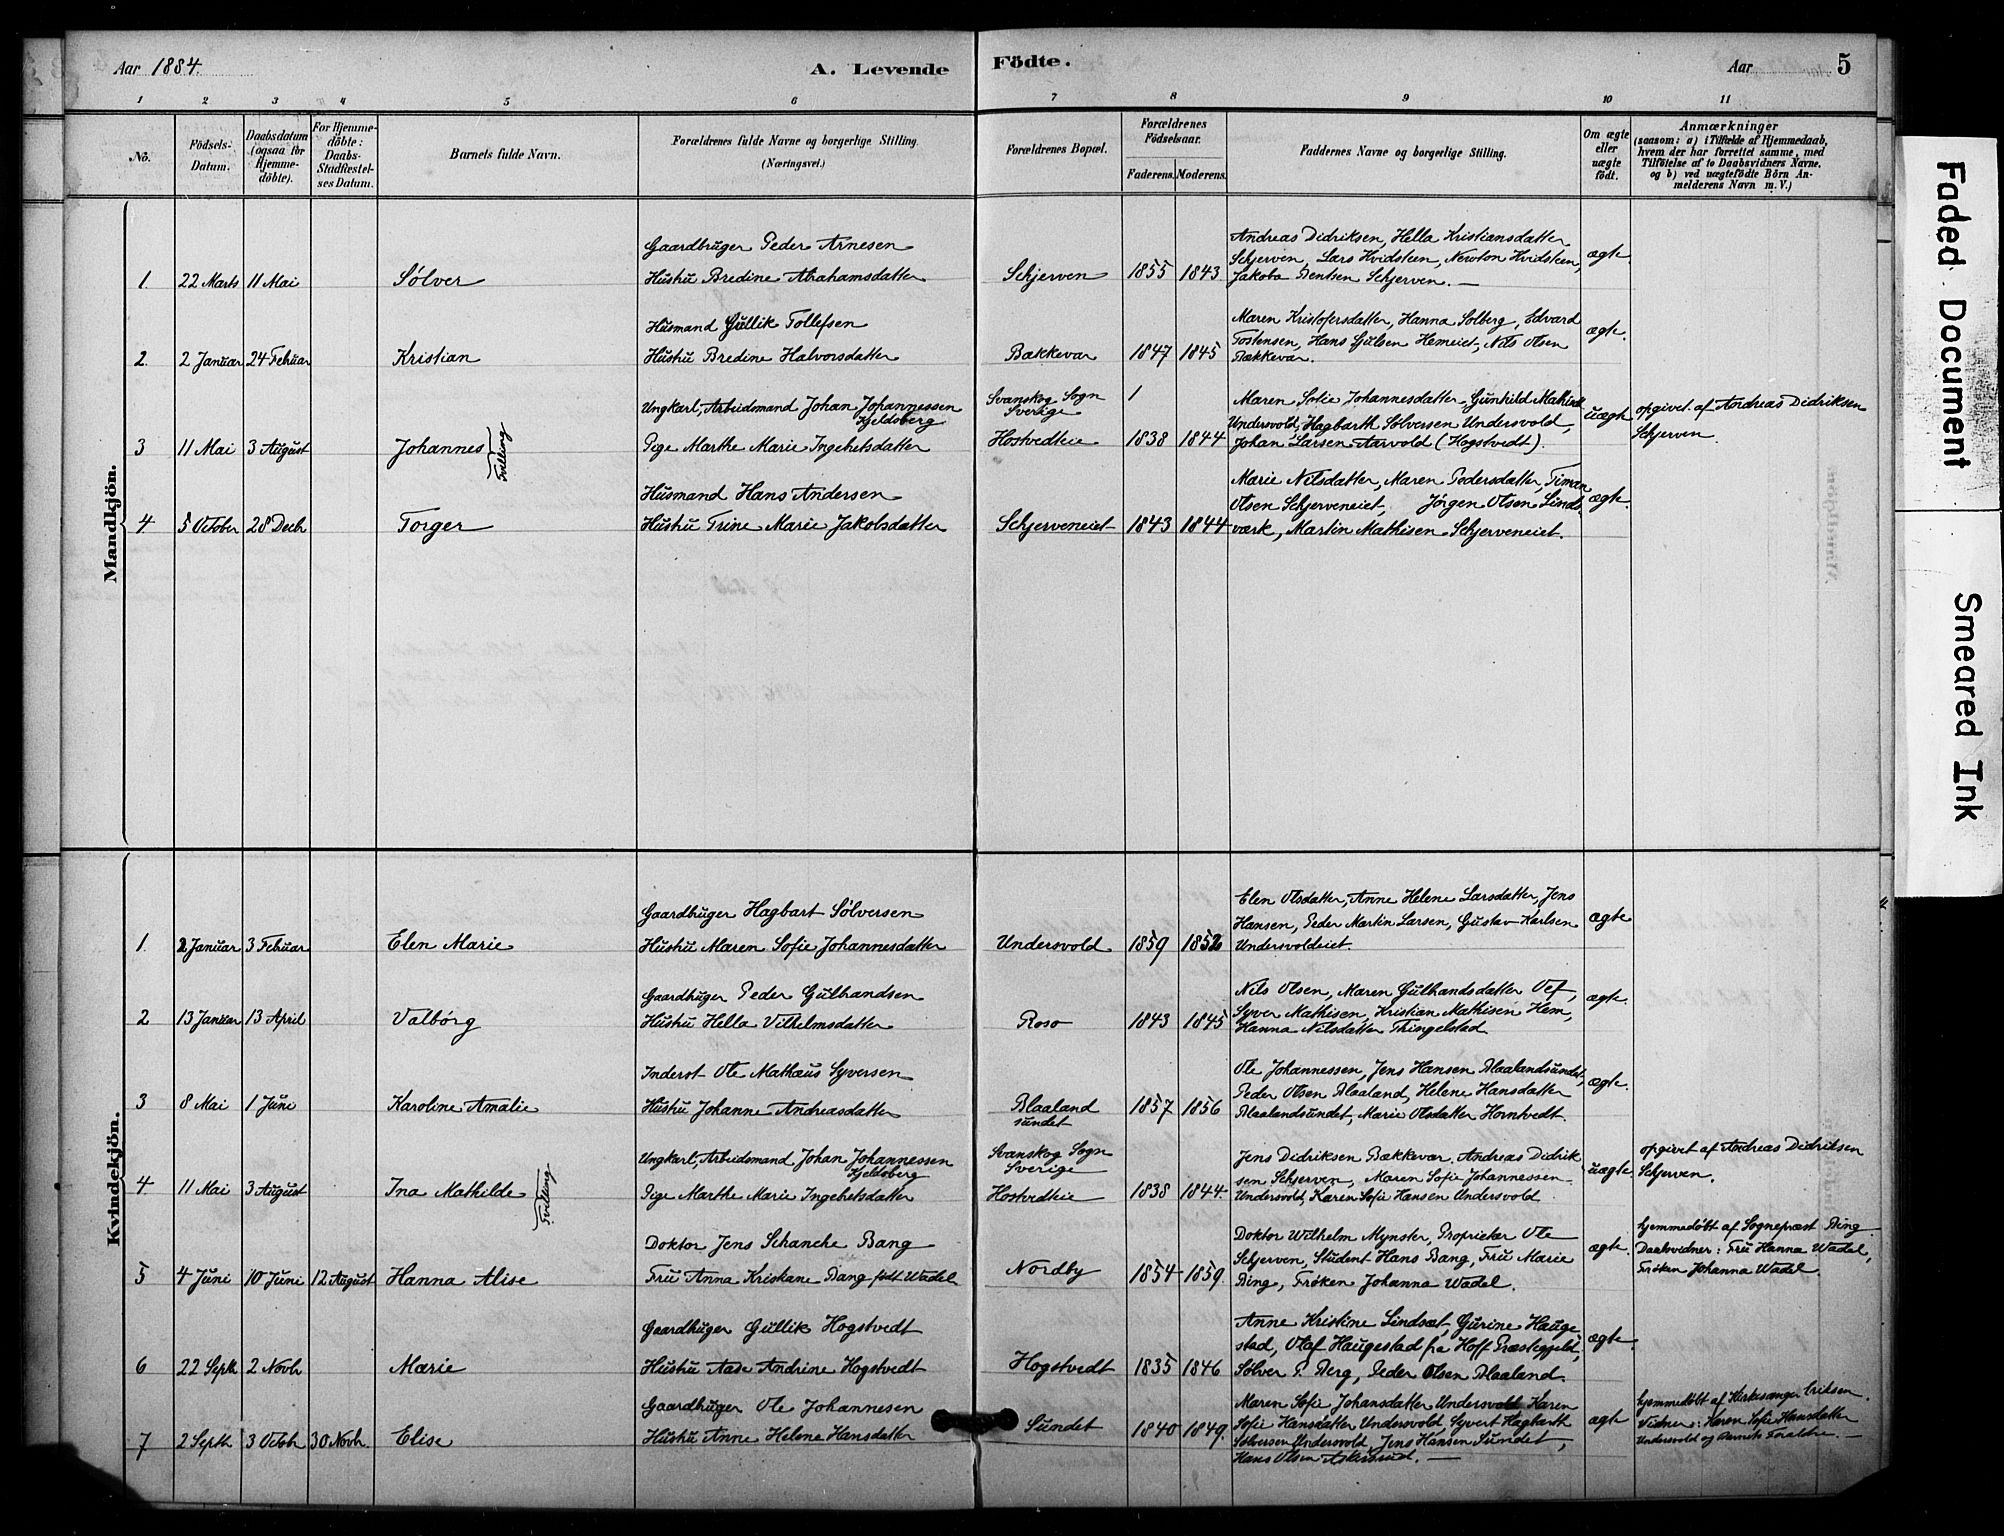 Aar 1884.
A. Levende Födte.
Aar
5
1 2 3 4 5 6 7 8 9 10 11
No.
Födsels-Datum.
Daabsdatum (ogsaa for Hjemme-döbte).
For Hjemme-döbte: Daabs-Stadfæstel-ses Datum.
Barnets fulde Navn.
Forældrenes fulde Navne og borgerlige Stilling. (Næringsvei.)
Forældrenes Bopæl.
Forældrenes Födselsaar.
Faderens. Moderens.
Faddernes Navne og borgerlige Stilling.
Om ægte eller uægte födt.
Anmærkninger
(saasom: a) i Tilfælde af Hjemmedaab, hvem der har forrettet samme, med Tilföielse af to Daabsvidners Navne, og b) ved uægtefödte Börn An-melderens Navn m. V.)
Mandkjön.
Gaardbruger Peder Arnesen
Andreas Didriksen, Hella Kristiansdatter
Schjerven, Lars Hvidsteen, Newton Hvidsteen, ægte
1. 22 Marts 11 Mai Sølver Hustru Bredine Abrahamsdatter Schjerven 1855 1843 Jakoba Bentsen Schjerven. —
Husmand Gullik Tollefsen
Maren Kristofersdatter, Hanna Solberg, Edvard ægte.
Tostensen, Hans Gulsen Hemeiet, Nils Olsen
2. 2 Januar 24 Febuar Kristian Hustru Bredine Halvorsdatter Bækkevar 1847 1845 Bækkevar.
Ungkarl, Arbeidsmand Johan Johannessen Kjeldsberg
Svanskog Sogn Sverige
Maren Sofie Johannesdatter, Gunhild Mathilde
Undersvold, Hagbarth Sølversen Undersvold, uægte opgivet af Andreas Didriksen
3 11 Mai 3 August Johannes Tvilling Pige Marthe Marie Ingebretsdatter Hostvedteie 1838 1844 Johan Larsen Aarvold (Hogstvedt). Schjerven.
Husmand Hans Andersen
Marie Nilsdatter, Maren Pedersdatter, Timan
Olsen Schjerveneiet, Jörgen Olsen Linds- ægte.
4. 5 October 28 Decbr Torger Hustru Trine Marie Jakobsdatter Schjerveneiet 1843 1844 værk, Martin Mathisen Schjerveneiet.
Kvindekjön.
Gaardbruger Hagbart Sølversen
Elen Olsdatter, Anne Helene Larsdatter, Jens
Hansen, Peder Martin Larsen, Gustav Karlsen ægte
1. 2 Januar 3 Febuar Elen Marie Hustru Maren Sofie Johannesdatter Undersvold 1859 1852 Undersvoldeiet.
Gaardbruger Peder Gulbrandsen
Nils Olsen, Maren Gulbrandsdatter Vef,
Syver Mathisen, Kristian Mathisen Hem, ægte.
2 13 Januar 13 April Valbörg Hustru Hella Vilhelmsdatter Roso 1843 1845 Hanna Nilsdatter Thingelstad
Inderst Ole Mathæus Syversen
Ole Johannessen, Jens Hansen Blaalandsundet, ægte.
Peder Olsen Blaaland, Helene Hansdatter
3 8 Mai 1 Juni Karoline Amalie Hustru Johanne Andreasdatter Blaaland sundet 1857 1856 Blaalandsundet, Marie Olsdatter Horntvedt.
Ungkarl, Arbeidsmand Johan Johannessen Kjeldsberg
Svanskog Sogn Sverige
Jens Didriksen Bækkevar, Andreas Didrik
sen Schjerven, Maren Sofie Johannessen uægte. opgivet af Andreas Didriksen
4. 11 Mai 3 August Ina Mathilde Tvilling Pige Marthe Marie Ingebretsdatter Hostvedteie 1838 1844 Undersvold, Karen Sofie Hansen Undersvold Schjerven.
Doktor Jens Schanche Bang
Doktor Wilhelm Mynster, Proprietær Ole
Schjerven, Student Hans Bang, Fru Marie ægte. hjemmedøbt af Sognepræst Bing
5 4 Juni 10 Juni 12 August Hanna Alise Fru Anna Kristiane Bang født Wadel Nordby 1854 1859. Bing, Frøken Johanna Wadel. Daabsvidner: Fru Hanna Wadel, Frøken Johanna Wadel.
Gaardbruger Gullik Hogstvedt
Anne Kristine Lindsæt, Gurine Hauge
stad, Olaf Haugestad fra Hoff Præstegjeld, ægte.
6 22 Septb 2 Novbr Marie Hustru Aase Andrine Hogstvedt Hogstvedt 1835 1846 Sølver P. Berg, Peder Olsen Blaaland.
Gaardbruger Ole Johannesen
Maren Sofie Johansdatter Undersvold Karen
Sofie Hansdatter Undersvold, Syvert Hagbarth ægte hjemmedøbt af Kirkesanger Eriksen.
7 2 Septb 3 Octobr 30 Novbr Elise Hustru Anne Helene Hansdatter Sundet 1840 1849. Sølversen Undersvold, Jens Hansen Sundet, Vidner: Karen Sofie Hansdatter
Hans Olsen Askersrud. — Undersvold og Barnets Forældre. —
Faded Document
Smeared Ink